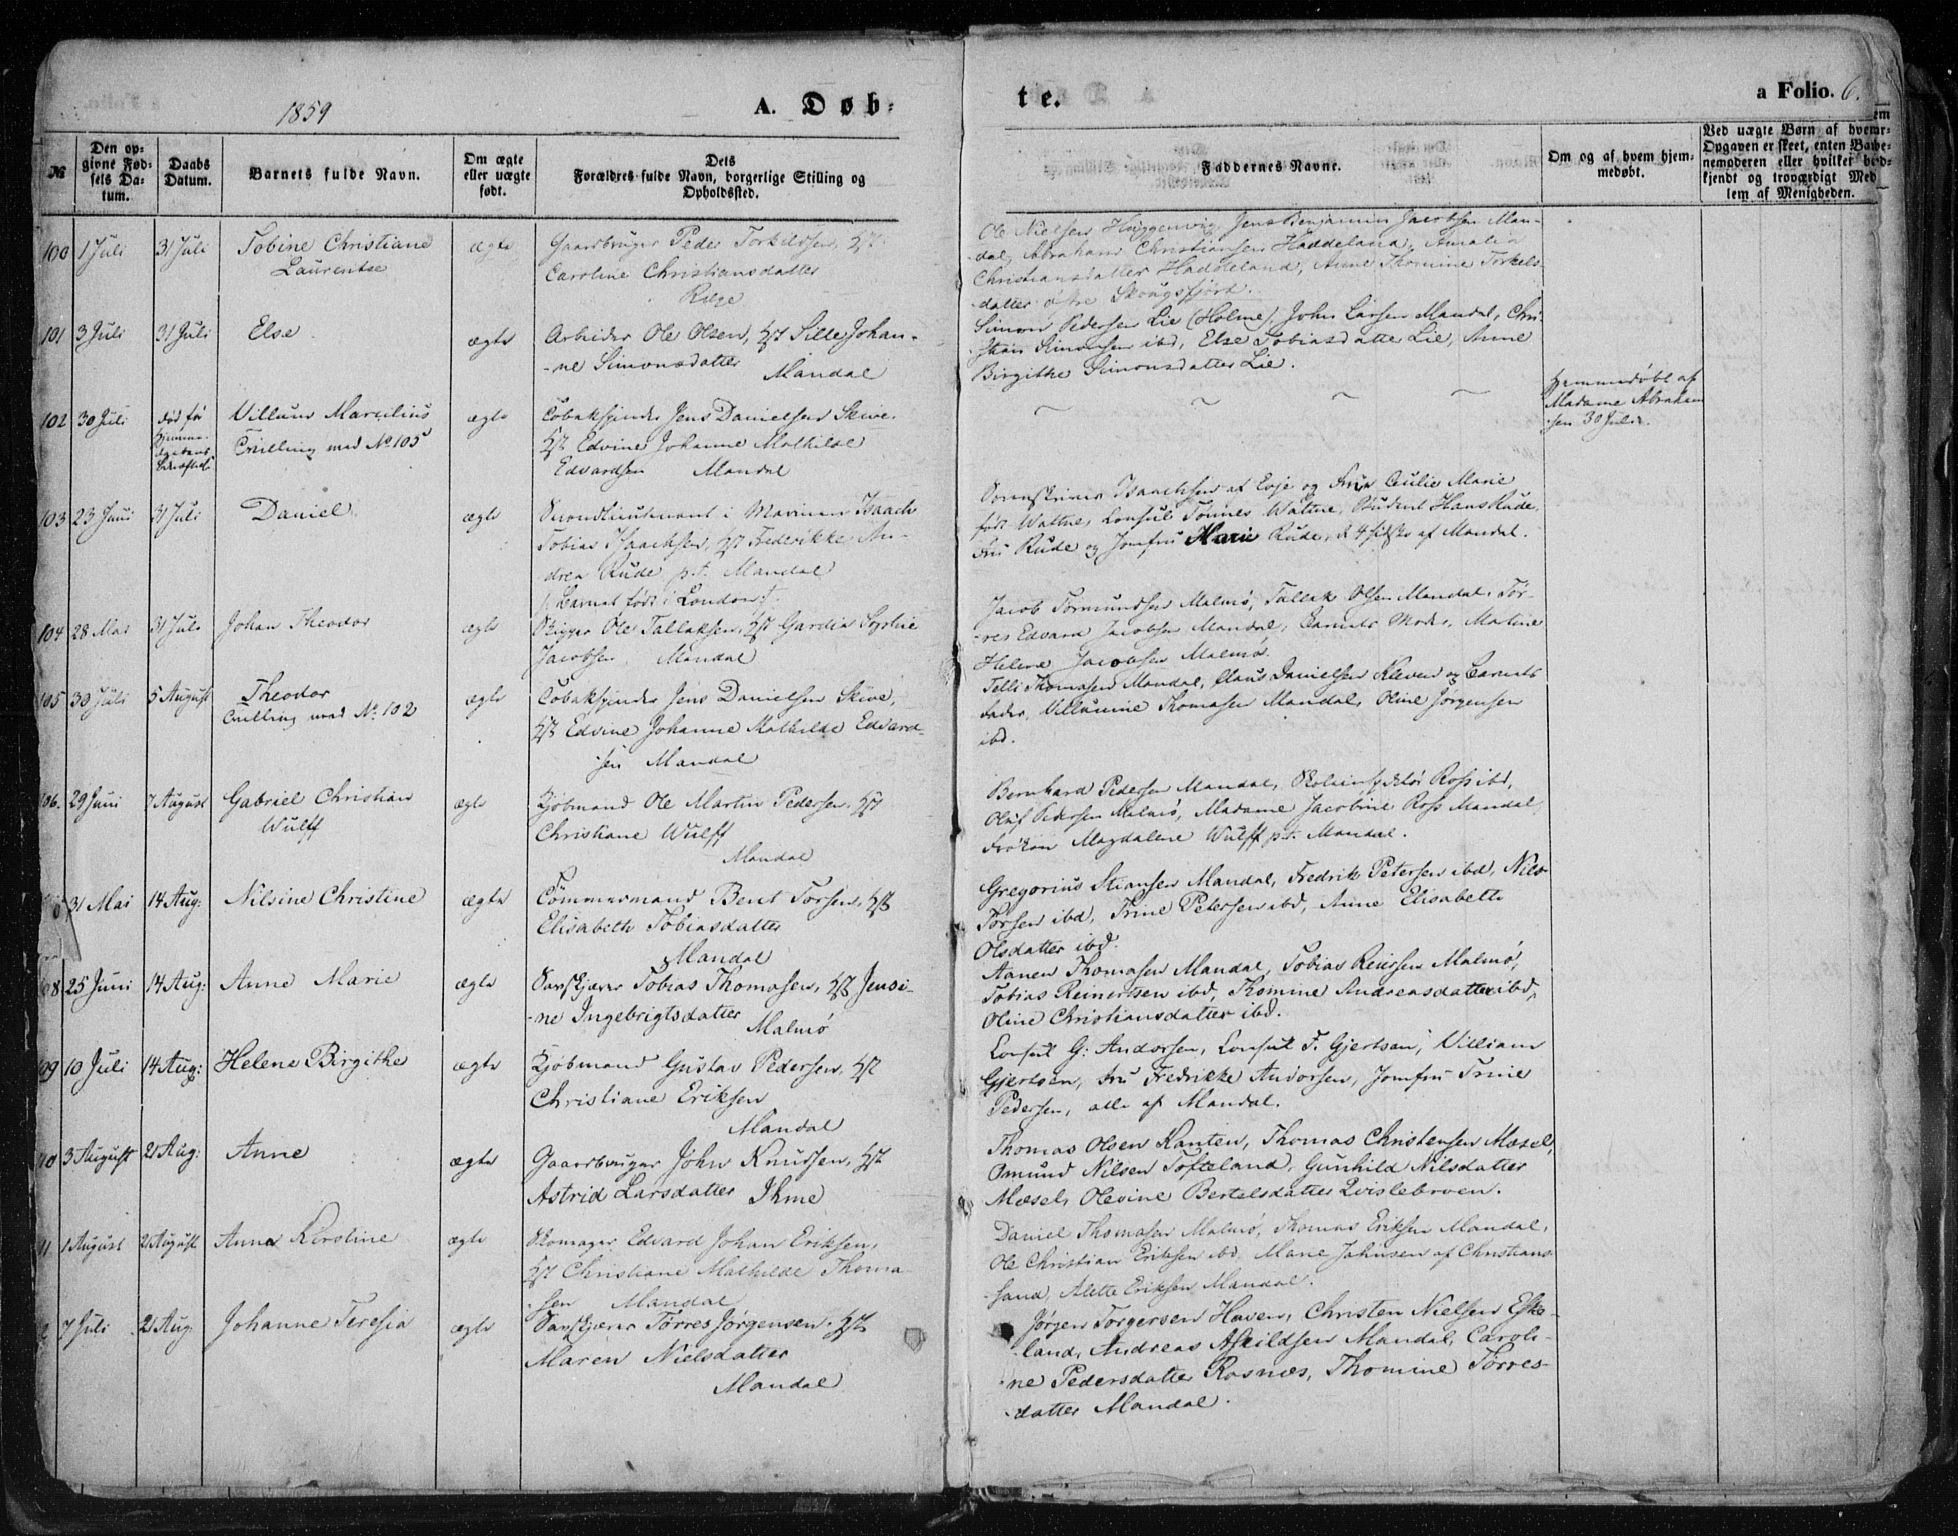 1859
A. Døb-
te.
a Folio. 6.
№
Den op-
givne Fød-
sels Da-
tum.
Daabs
Datum.
Barnets fulde Navn.
Om ægte
eller uægte
født.
Dets
Forældres fulde Navn, borgerlige Stilling og
Opholdssted.
Faddernes Navne.
Om og af hvem hjem-
medøbt.
Ved uægte Børn af hvem
Opgaven er skeet, enten Barne-
nemoderen eller hvilket
kjendt og troværdigt Med-
lem af Menigheden.
100 1 Juli 31 Juli Tobine Christiane
Laurentse
ægte
Gaardbruger Peder Torkildsen, Hst
Caroline Christiansdatter
Ole Nielsen Jens Benjamin Jacobsen Man-
dal, Abraham Christiansen Haddeland, Amalia
Christiansdatter Haddeland, Anne Thomine Torkels-
datter østre Skougsfjord.
101 3 Juli 31 Juli Else
ægte
Arbeider Ole Olsen, Hst Sille Johan-
-ne Simonsdatter Mandal
Simon Pedersen Lie (Holme), John Larsen Mandal, Chri-
stian Simonsen ibd, Else Tobiasdatter Lie, Anne
Birgithe Simonsdatter Lie.
102 30 Juli død før
Villum Marcelius
Tvilling med No 105
ægte
Tobakspinder Jens Danielsen Skive,
Hst Edvine Johanne Mathilde
Edvardsen Mandal
Hjemmedøbt af
Madame Abraham
sen 30 Juli.
103 23 Juni 31 Juli Daniel
ægte
Secondlieutenant i Marinen Isaach
Tobias Isaachsen, Hst Frederikke An-
drea Rude p.t. Mandal
(Barnet født i London).
Sorenskriver Isaachsen af Evje og Frue Cecilie Marie
født Wattne, Consul Tønnes Wattne, Student Hans Rude,
Fru Rude og Jomfru Marie Rude, de 4 sidste af Mandal.
104 28 Mai 31 Juli Johan Theodor
ægte
Skipper Ole Tallaksen, Hst Gardia Sophie
Jacobsen Mandal
Jacob Tormundsen Malmø, Tallak Olsen Mandal, Tør-
-res Edvard Jacobsen Mandal, Barnets Moder, Martine
Helene Jacobsen Malmø.
105 30 Juli 5 August Theodor
Tvilling med No 102
ægte
Tobakspinder Jens Danielsen Skive,
Hst Edvine Johanne Mathilde Edvard-
sen Mandal
Telli Thomasen Mandal, Claus Danielsen Kleven og Barnets
Fader, Villumine Thomasen Mandal, Oline Jørgensen
ibd.
106. 29 Juni 7 August Gabriel Christian
Wulff
ægte
Kjøbmand Ole Martin Pedersen, Hst
Christiane Wulff
Mandal
Bernhard Pedersen Mandal, Ross ibd,
Oluf Pedersen Malmø, Madame Jacobine Ross Mandal,
Frøken Magdalene Wulff p.t. Mandal.
31 Mai 14 Aug: Nilsine Christine
ægte
Tømmermand Bent Torsen, Hst
Elisabeth Tobiasdatter
Mandal
Gregorius Stiansen Mandal, Fredrik Petersen ibd, Nils
Torsen ibd, Trine Petersen ibd, Anne Elisabeth
Olsdatter ibd.
8 25 Juni 14 Aug: Anne Marie
ægte
Savskjærer Tobias Thomasen, Hst Jensi-
-ne Ingebrigtsdatter Malmø
Aanen Thomasen Mandal, Tobias Reiersen Malmø,
Tobias Reinertsen ibd, Thomine Andreasdatter ibd,
Oline Christiansdatter ibd.
09 10 Juli 14 Aug: Helene Birgithe
ægte
Kjøbmand Gustav Pedersen, Hst
Christiane Eriksen
Mandal
Consul G: Andorsen, Consul F. Gjertsen, Villiam
Gjertsen, Fru Fredrikke Andorsen, Jomfru Trine
Pedersen, alle af Mandal.
10 3 August 21 Aug: Anne
ægte
Gaardbruger John Knudsen, Hst
Astrid Larsdatter Ihme
Thomas Olsen Kanten, Thomas Christensen Mæsel,
Omund Nilsen Tofteland, Gunhild Nilsdatter
Mæsel, Olevine Bertelsdatter Qvislebroen.
11 1 August 21 August Anna Karoline
ægte
Skomager Edvard Johan Eriksen,
Hst Christiane Mathilde Thoma-
-sen Mandal
Daniel Thomasen Malmø, Thomas Eriksen Mandal,
Ole Christian Eriksen ibd, Marie Jahnsen af Christians-
sand, Alette Eriksen Mandal.
2 7 Juli 21 Aug: Johanne Teresia
ægte
Savskjærer Tørres Jørgensen, Hst
Maren Nielsdatter
Mandal
Jørgen Torgersen Haven, Christen Nielsen Eske-
-land, Andreas Askildsen Mandal, Caroli-
-ne Pedersdatter Rosnæs, Thomine Tørres-
-datter Mandal.